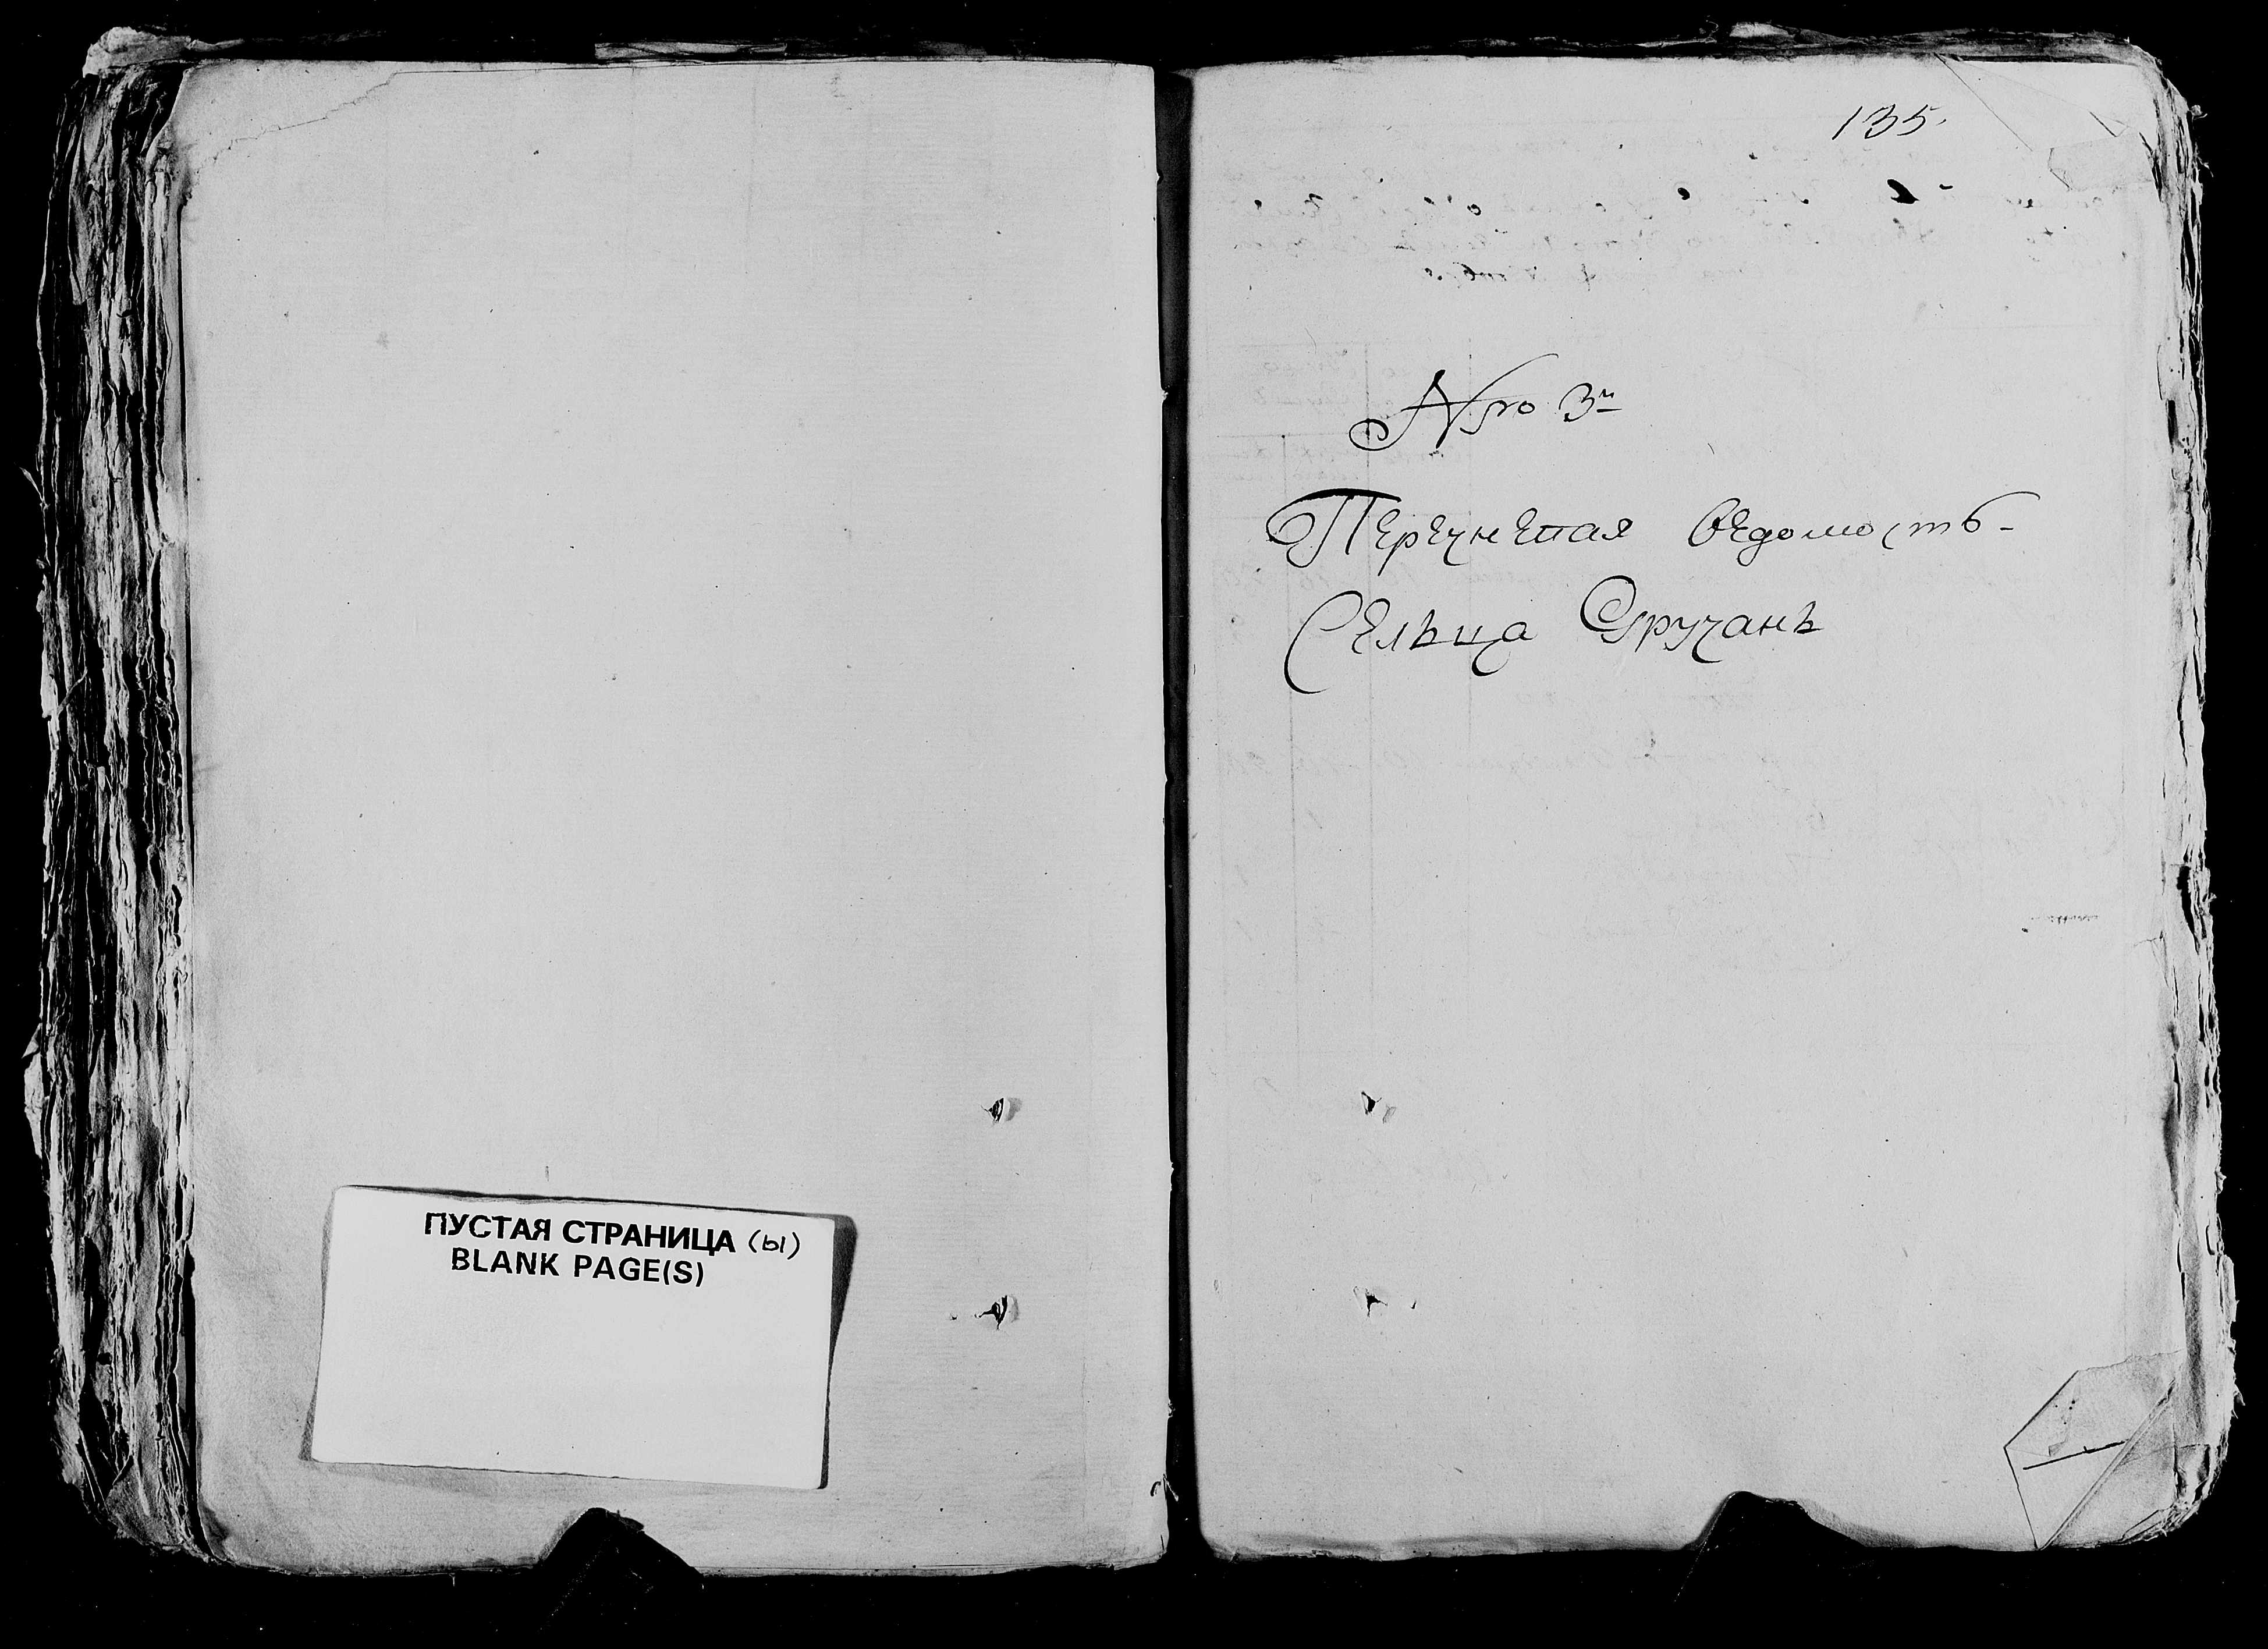 ПУСТАЯ СТРАНИЦА (ы)
BLANK PAGE(S)
135.
Nro 3й
Перечнепая ведомость
Сельца Дручань